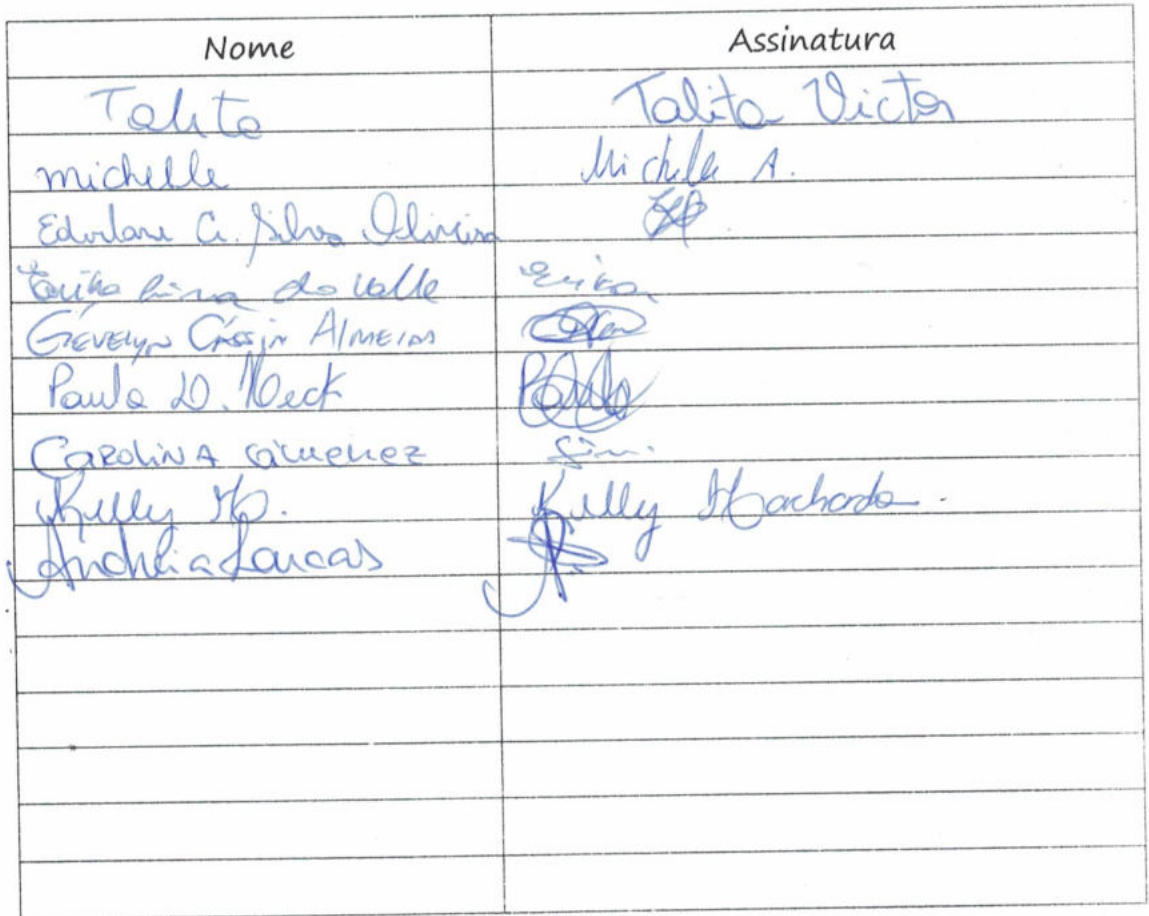 Nome Assinatura
Talita Talita Victor
michelle Michelle A.
Edvilane C. Silva Oliveira
Erika do Valle Erika
Gevelyn Almeida
Paula D. Neck Paula
CAROLINA Gimenez Gim.
Kelly M. Kelly Machado.
Andréia Lucas